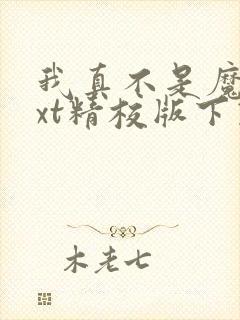 我真不是魔
xt精校版下
木老七